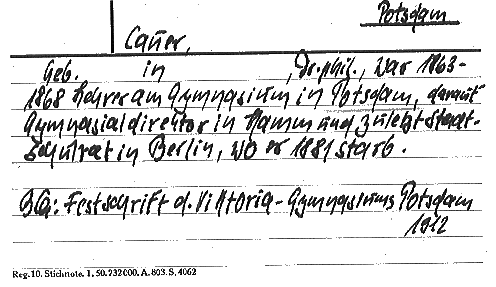 Potsdam
Cauer,
Geb. in , Dr. phil., war 1863-
1868 Lehrer am Gymnasium in Potsdam, darauf
Gymnasialdirektor in Hamm und zuletzt Stadt-
schulrat in Berlin, wo er 1881 starb.
BQ: Festschrift d. Viktoria-Gymnasiums Potsdam
1912
Reg. 10. Stichnote. 1. 50. 732000. A. 803. S. 4062